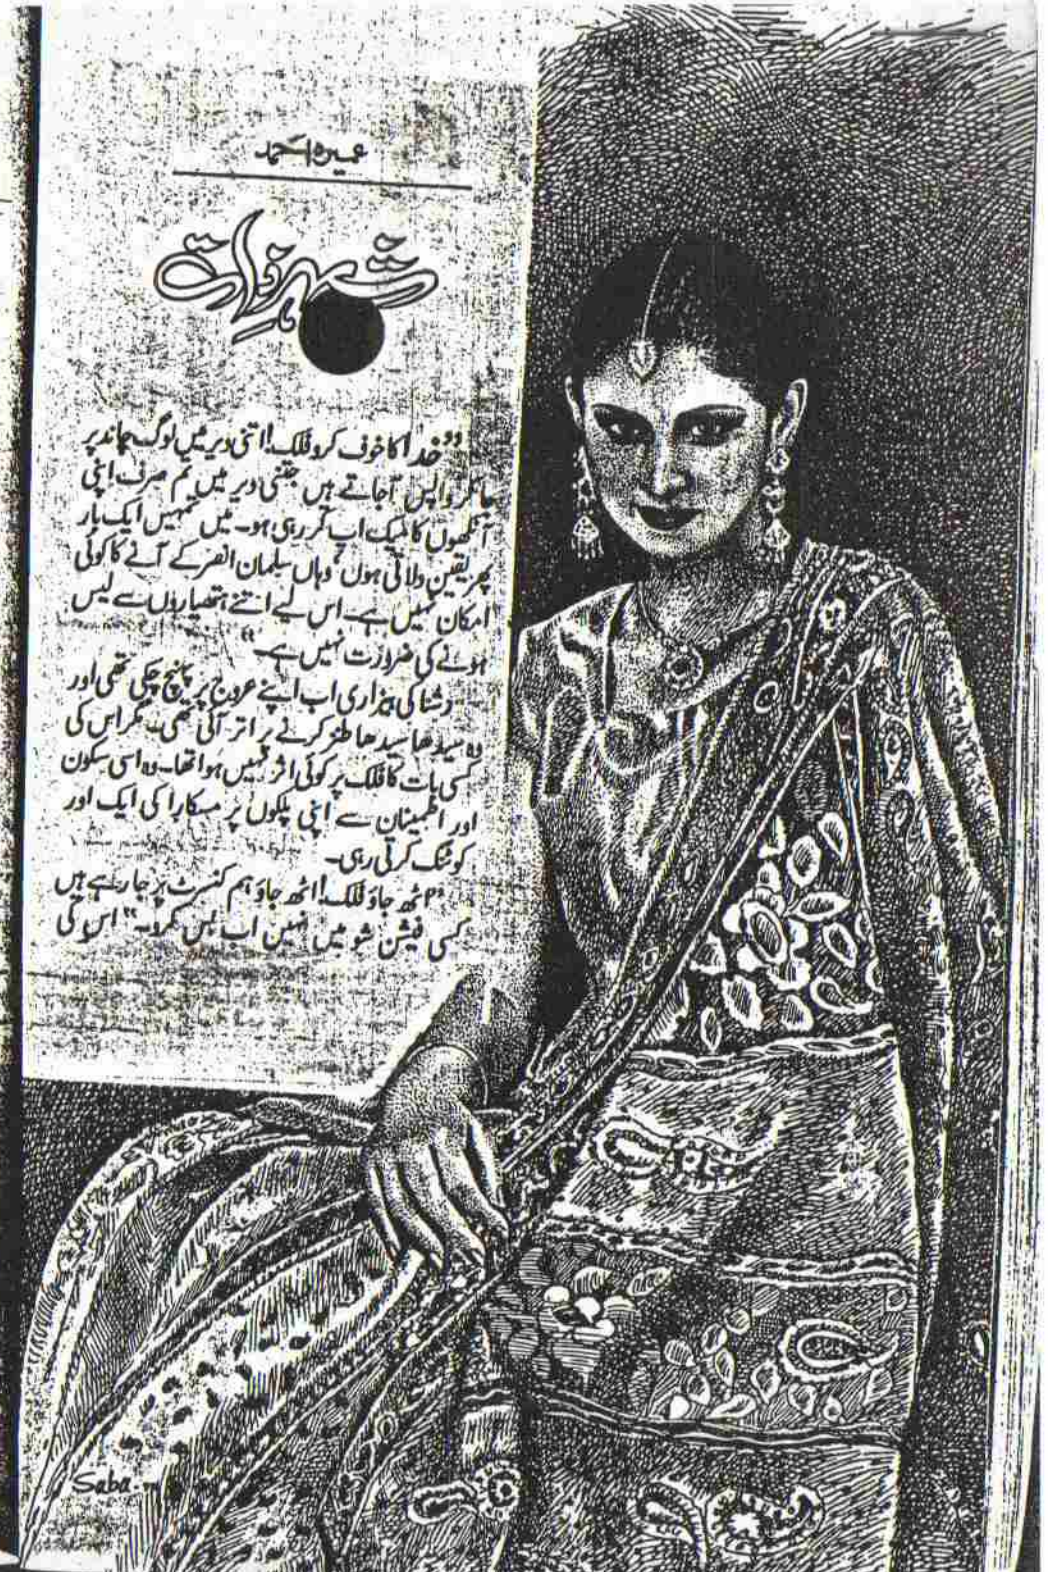 عمیرہ احمد
شہر ذات
”خدا کا خوف کرو فلک! اتنی دیر میں لوگ چاند پر
جا کر واپس آجاتے ہیں جتنی دیر میں تم صرف اپنی
آنکھوں کا میک اپ کر رہی ہو۔ میں تمہیں ایک بار
پھر یقین دلاتی ہوں‘ وہاں سلمان انصر کے آنے کا کوئی
امکان نہیں ہے۔ اس لیے اتنے ہتھیاروں سے لیس
ہونے کی ضرورت نہیں ہے۔“
رشنا کی بیزاری اب اپنے عروج پر پہنچ چکی تھی اور
وہ سیدھا سیدھا طنز کرنے پر اتر آئی تھی۔ مگر اس کی
کسی بات کا فلک پر کوئی اثر نہیں ہوا تھا۔ وہ اسی سکون
اور اطمینان سے اپنی پلکوں پر مسکارا کی ایک اور
کوٹنگ کرتی رہی۔
”اٹھ جاؤ فلک! اٹھ جاؤ ہم کنسرٹ پر جا رہے ہیں
کسی فیشن شو میں نہیں اب بس کرو۔“ اس کی
Saba